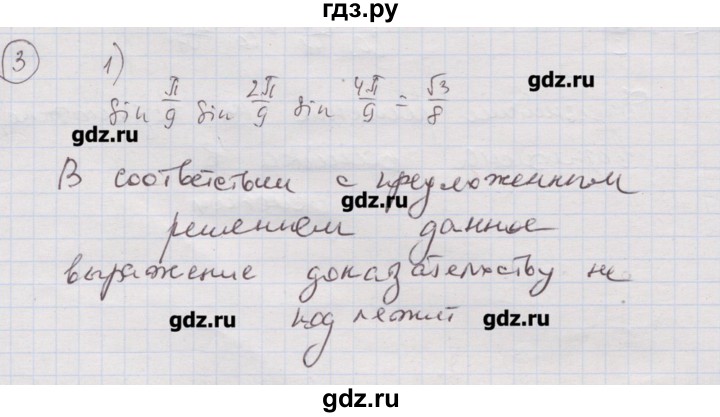 гдз.ру
3 1)
sin π/9 sin 2π/9 sin 4π/9 = √3/8
gdz.ru
gdz.ru
В соответствии с предложенным
gdz.ru
решением данное
выражение доказательству не
gdz.ru подлежит gdz.ru
gdz.ru